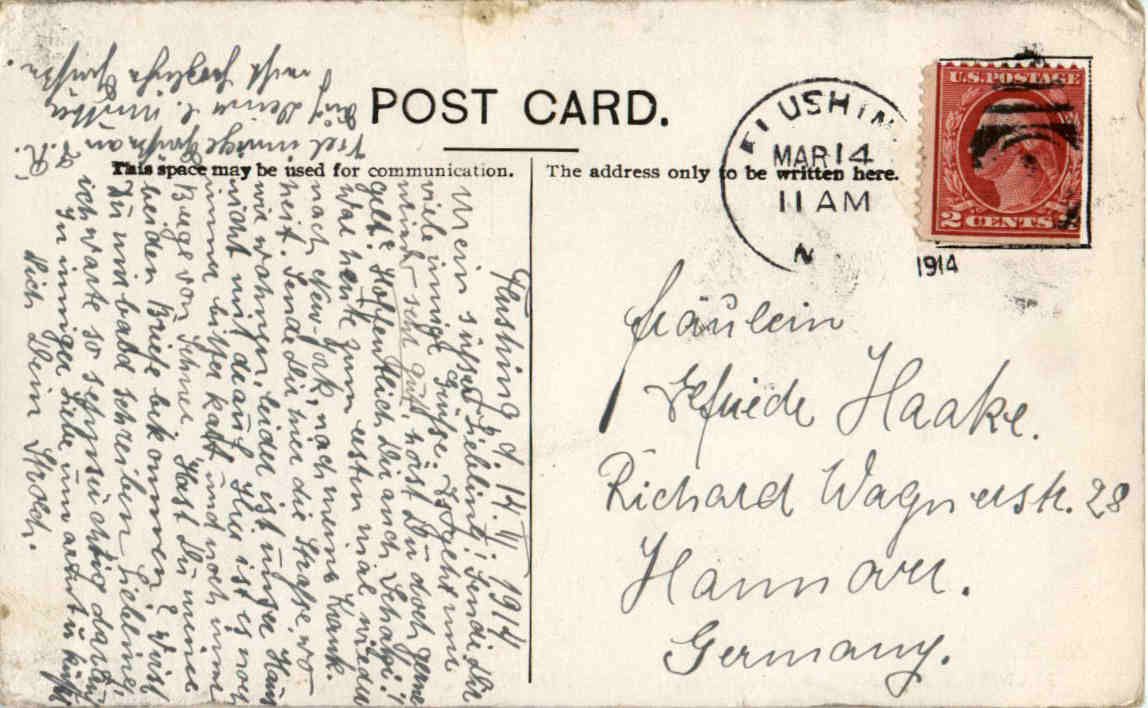 POST CARD.
This space may be used for communication.
The address only to be written here.
FLUSHIN
MAR 14
11 AM
N
1914
U.S. POSTAGE
2 CENTS 2
Fräulein
Haake.
Richard Wagnerstr. 28
Hannover.
Germany.
Flushing d. 14. 1914
Mein süsses Lieblint! Sende Dir
viele innige Grüsse. Es geht mir
wieder sehr gut, hörst Du doch gerne
gelt? Hoffentlich Dir auch Schatzi!
War heute zum ersten mal wieder
nach New-York, nach meine Krank-
heit. Sende Dir hier die Strasse wo
wir wohnen, leider ist unser Haus
nicht mit darauf. Hier ist es noch
immer bitter kalt und noch immer
Berge von Schnee. Hast Du meine
beiden Briefe bekommen? Wirst
Du mir bald schreiben Liebling,
ich warte so sehnsüchtig darauf
In inniger Liebe umarmt u. küsst
Dich Dein Strolch.
Viel innige Grüsse an
Auch Deine l. Mutter
recht herzliche Grüsse.